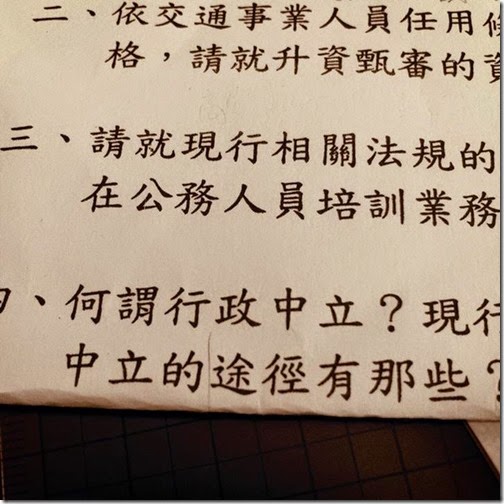 二、依交通事業人員任用
格，請就升資甄審的資
三、請就現行相關法規的
在公務人員培訓業務
、何謂行政中立？現行
中立的途徑有那些？